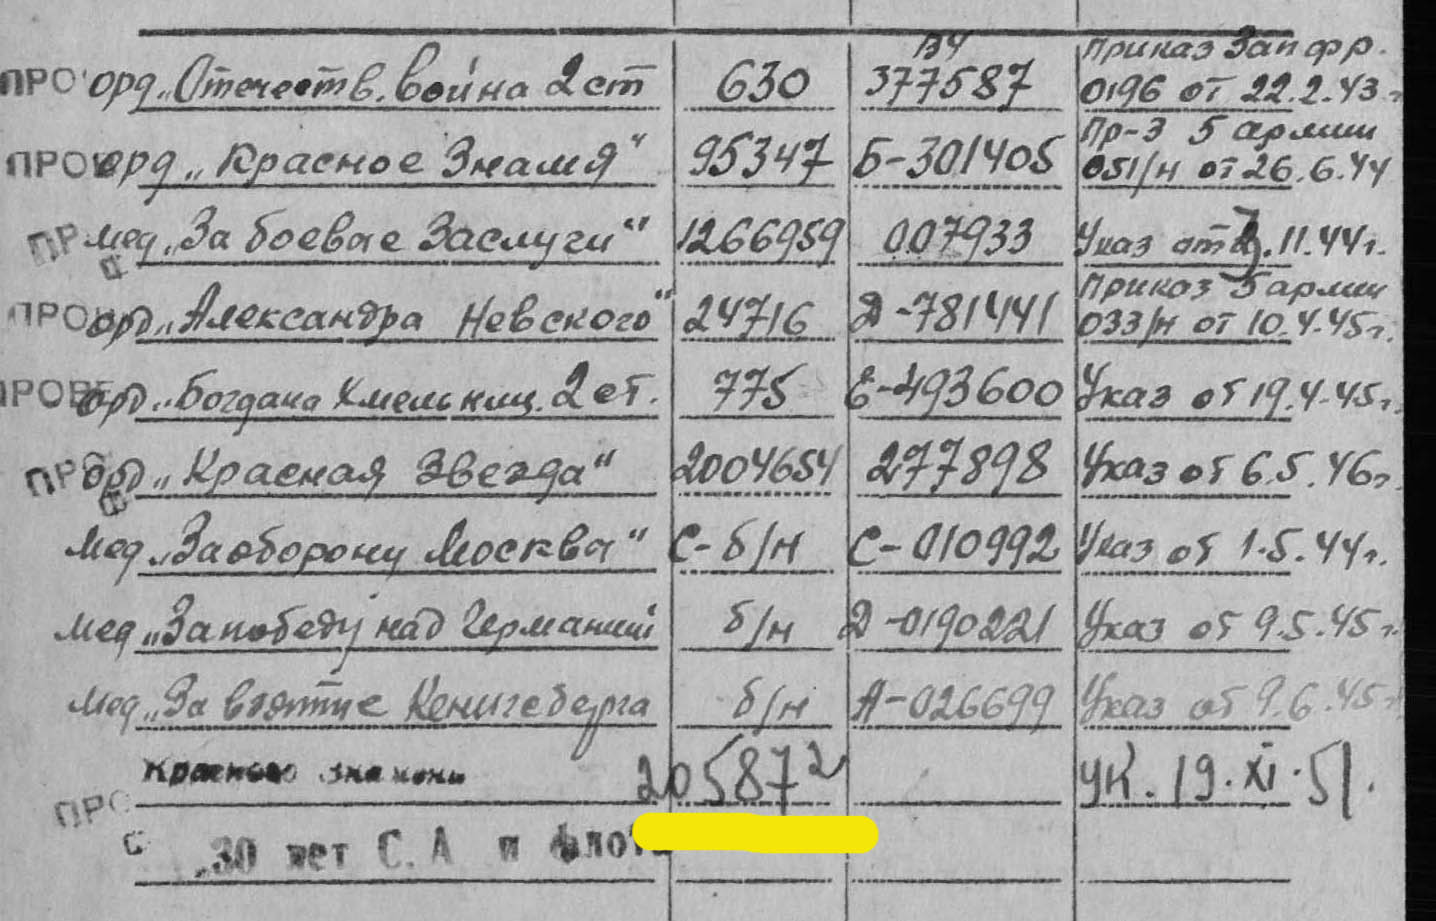 ПРО орд „Отечеств. война 2 ст 630 ВЧ 377587 Приказ Зап фр. 0196 от 22.2.43 г
ПРО орд „Красное Знамя" 95347 Б-301405 Пр-з 5 армии 051/н от 26.6.44
ПР мед „За боевые Заслуги" 1266959 007933 Указ от .11.44г.
ПРО орд „Александра Невского" 24716 Д-781441 Приказ 5 армии 033/н от 10.4.45г.
ПРОВЕ орд „Богдана Хмельниц. 2 ст. 775 Е-493600 Указ от 19.4.45г.
ПРО орд „Красная Звезда" 2004654 277898 Указ от 6.5.46г.
мед „За оборону Москвы" С-б/н С-010992 Указ от 1.5.44г.
мед „За победу над Германией б/н Д-0190221 Указ от 9.5.45г.
мед „За взятие Кенигсберга б/н А-026699 Указ от 9.6.45г
ПРО Красного знамени 205872 УК. 19.XI.51.
„30 лет С. А и флота